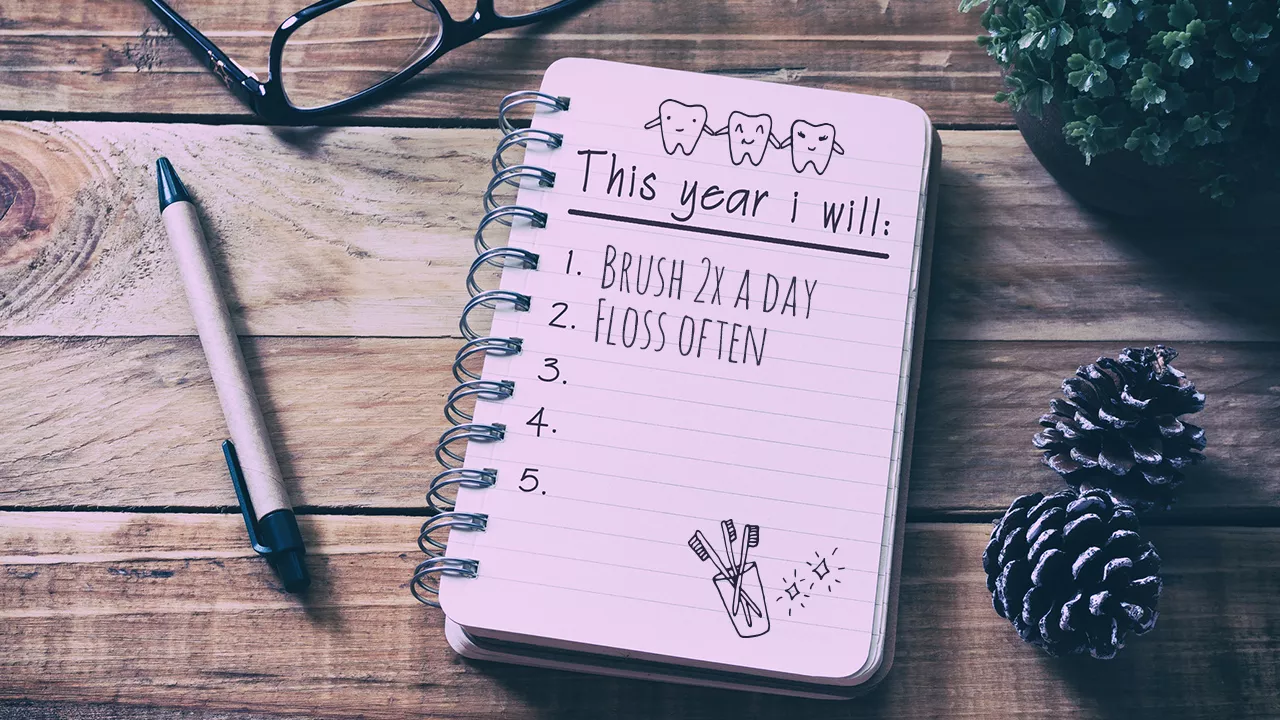 This year i will:
1. BRUSH 2X A DAY
2. FLOSS OFTEN
3.
4.
5.